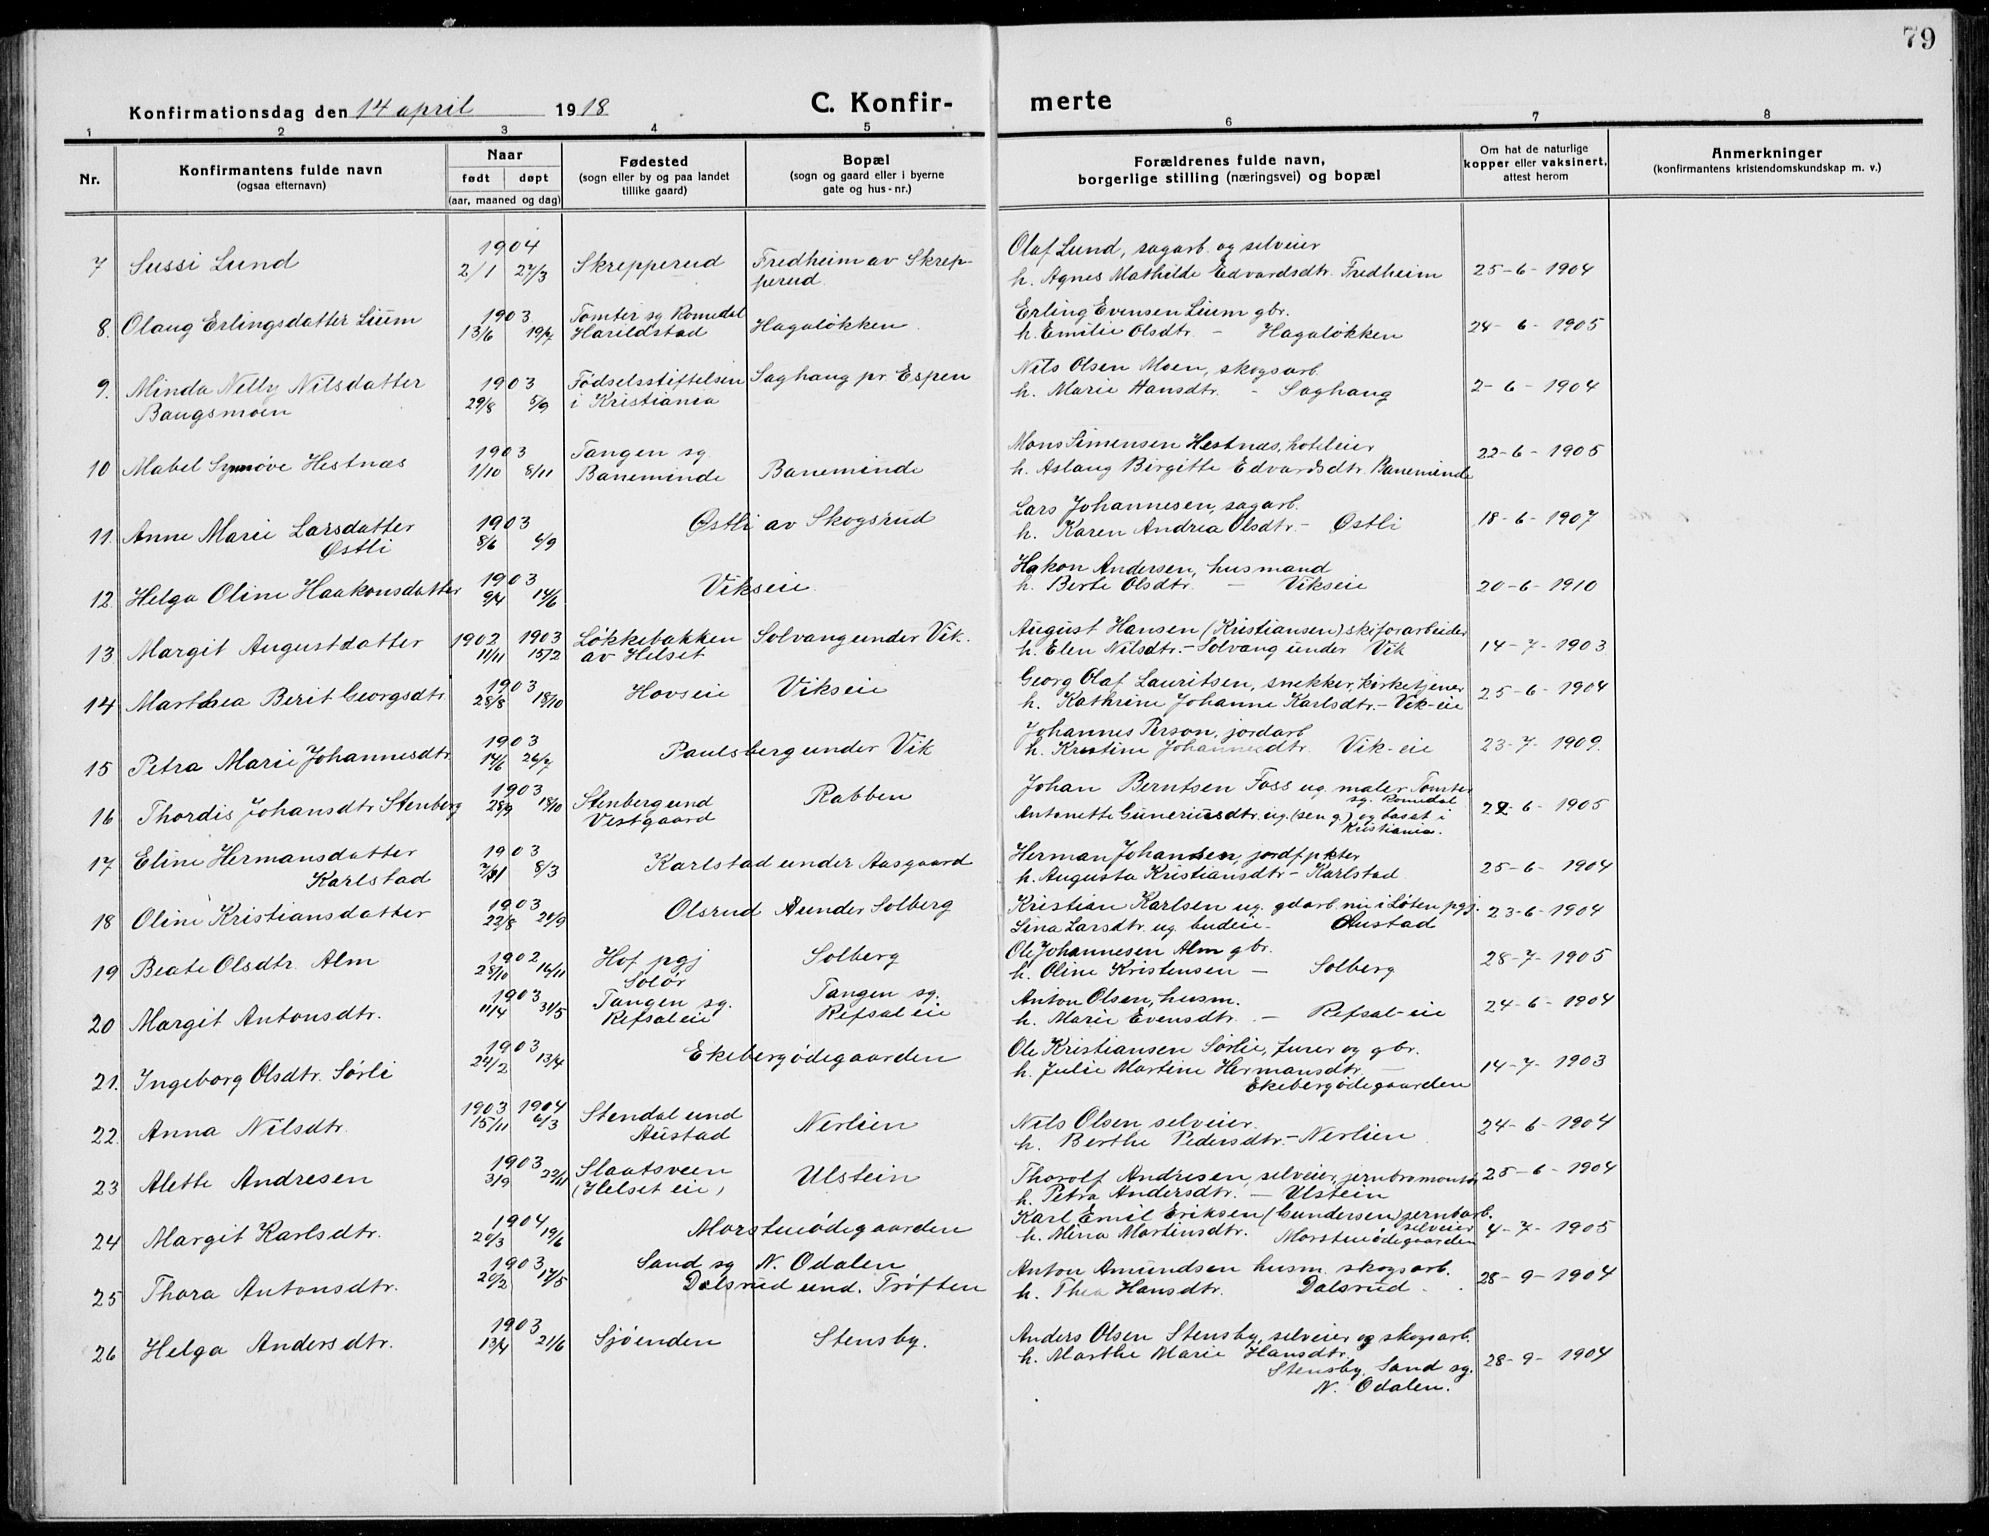 79
Konfirmationsdag den 14 april 1918
C. Konfir-
merte
1 2 3 4 5 6 7 8
Nr.
Konfirmantens fulde navn
(ogsaa efternavn)
Naar
født døpt
(aar, maaned og dag)
Fødested
(sogn eller by og paa landet
tillike gaard)
Bopæl
(sogn og gaard eller i byerne
gate og hus-nr.)
Forældrenes fulde navn,
borgerlige stilling (næringsvei) og bopæl
Om hat de naturlige
kopper eller vaksinert,
attest herom
Anmerkninger
(konfirmantens kristendomskundskap m. v.)
1904 Olaf Lund, sagarb. og selveier
7 Sussi Lund 2/1 27/3 Skrepperud Fredheim av Skrep- h. Agnes Mathilde Edvardsdtr. Fredheim 25-6-1904
perud.
1903 Tomter sg Romedal Erling Evensen Lium gbr.
8. Olaug Erlingsdatter Lium 13/6 19/7 Harildstad Hagaløkken h. Emilie Olsdtr. - Hagaløkken 24-6-1905
9. Minda Nelly Nilsdatter 1903 Fødselsstiftelsen Saghaug pr. Espen Nils Olsen Moen, skogsarb.
Baugsmoen 29/8 5/9 i Kristiania h. Marie Hansdtr. - Saghaug 2-6-1904
1903 Tangen sg. Mons Simensen Hestnæs, hoteleier
10 Mabel Synnøve Hestnæs 1/10 8/11 Baneminde Baneminde h. Aslaug Birgitte Edvardsdtr. Baneminde 22-6-1905
11. Anne Marie Larsdatter 1903 Østli av Skogsrud Lars Johannesen, sagarb.
Østli 8/6 6/9 h. Karen Andrea Olsdtr. - Østli 18-6-1907
1903 Vikseie Hakon Andersen, husmand
12. Helga Oline Haakonsdatter 9/4 14/6 h. Berte Olsdtr. - Vikseie 20-6-1910
1902 1903 Løkkebakken Solvang under Vik. August Hansen (Kristiansen) skiforarbeider
13 Margit Augustdatter 11/11 15/2 av Helset h. Elen Nilsdtr. - Solvang under Vik 14-7-1903
1903 Hovseie Vikseie Georg Olaf Lauritsen, snekker, kirketjener
14 Marthea Berit Georgsdtr. 28/8 18/10 h. Kathrine Johanne Karlsdtr. - Vik-eie 25-6-1904
1903 Paulsberg under Vik Johannes Person, jordarb
15 Petra Marie Johannesdtr. 14/6 26/7 h. Kristine Johannesdtr. Vik-eie 23-7-1909.
1903 Stenberg und Rabben Johan Berntsen Foss ug. maler Tomter
sg. Romedal
16 Thordis Johansdtr Stenberg 28/9 18/10 Vestgaard Antonette Gunerusdtr. ug. (sen g.) og bosat i 22-6-1905
Kristiania.
17 Eline Hermansdatter 1903 Karlstad under Aasgaard Herman Johansen, jordfpkter
Karlstad 8/3 h. Augusta Kristiansdtr - Karlstad. 25-6-1904
1903 Olsrud under Solberg Kristian Karlsen ug. gdarb. nu i Løten pgj.
18 Oline Kristiansdatter 22/8 20/9 Lina Larsdtr. ug. budeie - Austad 23-6-1904
1902 Hof pgj Solberg Ole Johannesen Alm gbr.
19 Beate Olsdtr. Alm 28/10 16/11 Solør h. Oline Kristensen - Solberg 28-7-1905
1903 Tangen sg. Tangen sg. Anton Olsen, husm.
20 Margit Antonsdtr. 11/4 31/5 Refsaleie Refsaleie h. Marie Evensdtr. - Refsal-eie 24-6-1904
1903 Ekebergødegaarden Ole Kristiansen Sørlie, furer og gbr.
21. Ingeborg Olsdtr. Sørli 24/2 13/4 h. Julie Martine Hermansdtr. - 14-7-1903
Ekebergødegaarden
1903 1904 Stendal und Nerlien Nils Olsen selveier.
22. Anna Nilsdtr. 15/11 6/3 Austad h. Berthe Pedersdtr. - Nerlien 24-6-1904
1903 Slaatsveen Ulstein Thorolf Andresen, selveier, jernbromontør
23 Alette Andresen 3/9 22/11 (Helset eie) h. Petra Andersdtr. - Ulstein 25-6-1904
1904 Morstuødegaarden Karl Emil Eriksen (Gundersen) jernbarb.
selveier
24 Margit Karlsdtr. 20/3 19/6 h. Mina Martinsdtr. Morstuødegaarden 4-7-1905
1903 Sand sg N. Odalen Anton Amundsen husm. skogsarb.
25 Thora Antonsdtr. 20/2 17/5 Dalsrud und. Trøften h. Thea Hansdtr. Dalsrud. 28-9-1904
1903 Anders Olsen Stensby, selveier og skogsarb.
26 Helga Andersdtr. 13/4 21/6 Sjøenden Stensby. h. Marthe Marie Hansdtr. 28-9-1904
Stensby, Sand sg.
N. Odalen.